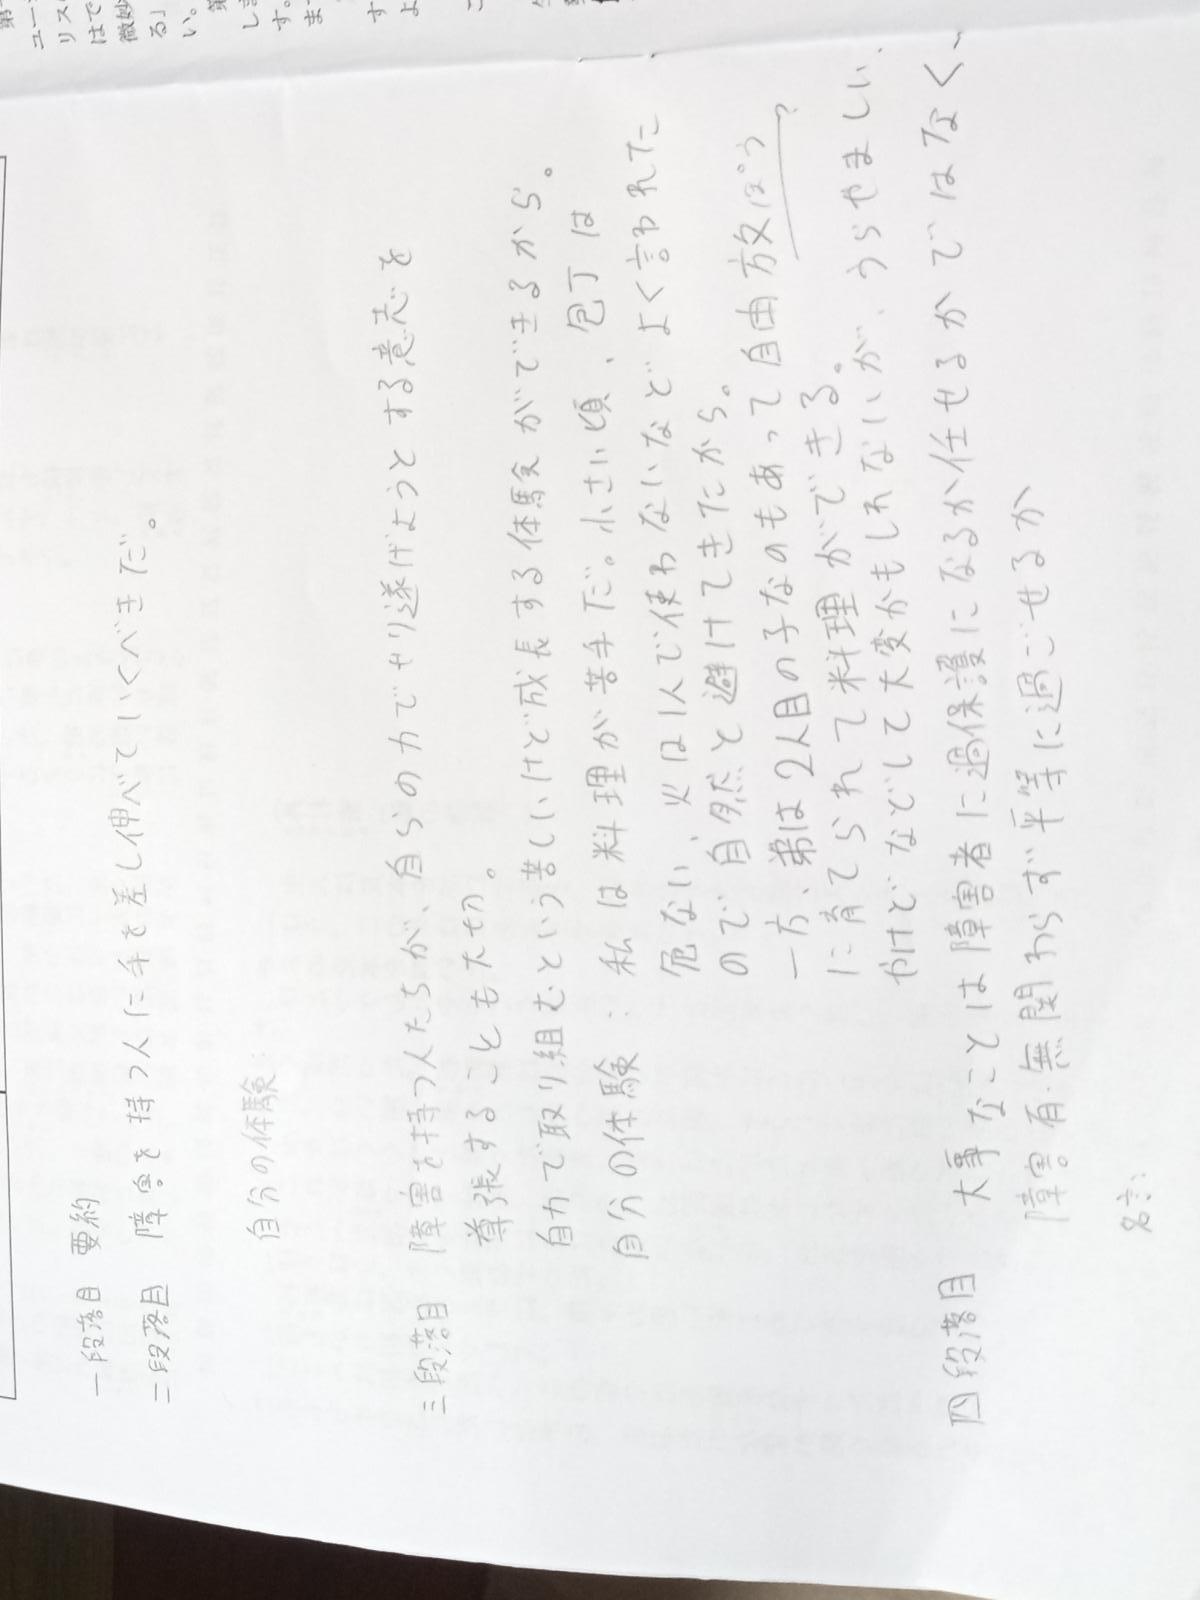 一段落目 要約
二段落目 障害を持つ人に手を差し伸べていくべきだ。
自分の体験:
三段落目 障害を持つ人たちが、自らの力でやり遂げようとする意志を
尊張することも大切。
自力で取り組むという苦しいけど成長する体験ができるから。
自分の体験:私は料理が苦手だ。小さい頃、包丁は
危ない、火は1人で使わないなどよく言われた
ので自然と避けてきたから。
一方、弟は2人目の子なのもあって自由放ぽう?
に育てられて料理ができる。
やけどなどして大変かもしれないが、うらやましい、
四段落目 大事なことは障害者に過保護になるか任せるかではなく、
障害有・無関わらず平等に過ごせるか
名言: